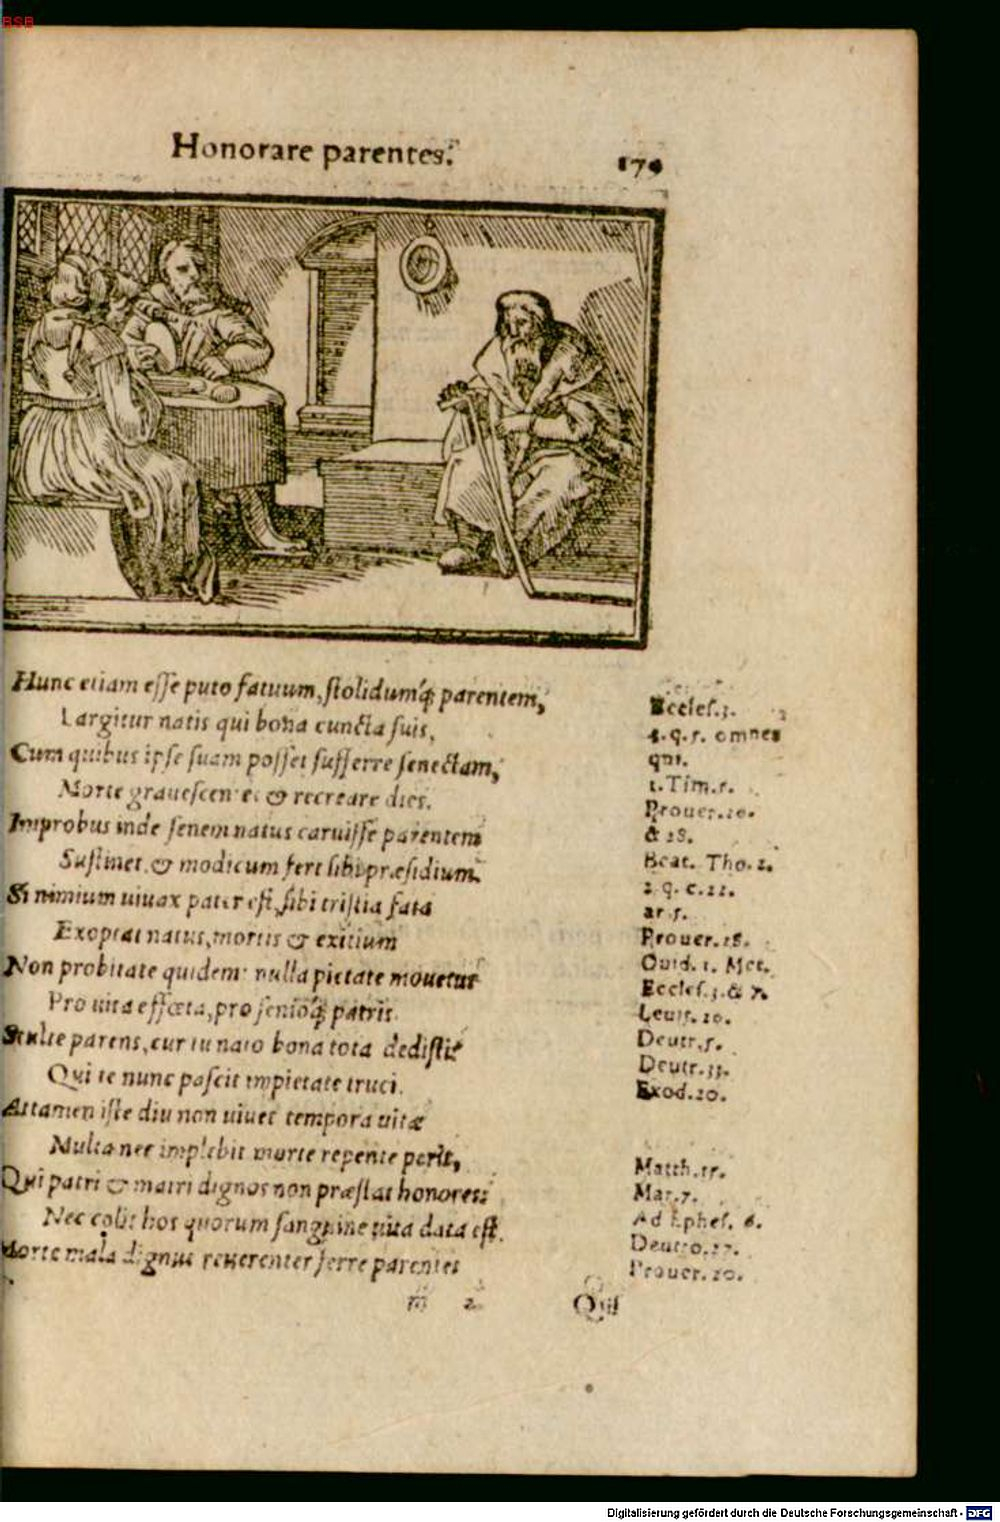 BSB
Honorare parentes.
170
Hunc etiam esse puto fatuum, stolidumq́; parentem,
Largitur natis qui bona cuncta suis,
Cum quibus ipse suam posset sufferre senectam,
Morte grauescente & recreare dies.
Improbus inde senem natus caruisse parentem
Sustinet, & modicum fert sibi præsidium.
Si nimium uiuax pater est, sibi tristia fata
Exoptat natus, mortis & exitium
Non probitate quidem nulla pietate mouetur
Pro uita effœta, pro senioq́; patris.
Stulte parens, cur tu nato bona tota dedisti?
Qui te nunc pascit impietate truci.
Attamen iste diu non uiuet tempora uitæ
Multa nec implebit morte repente perit,
Qui patri & matri dignos non præstat honores:
Nec colit hos quorum sanguine uita data est.
Morte mala dignus reuerenter ferre parentes
m 2
Qui
Eccles.3.
4.q.5. omnes
qui.
1.Tim.5.
Prouer.20.
& 28.
Beat. Tho. 2.
2 q. c.22.
ar 5.
Prouer.28.
Ouid. 1. Met.
Eccles.3.& 7.
Leuit.20.
Deutr.5.
Deutr.33.
Exod.20.
Matth.15.
Mar.7.
Ad Ephes. 6.
Deutro.27.
Prouer.20.
Digitalisierung gefördert durch die Deutsche Forschungsgemeinschaft - DFG